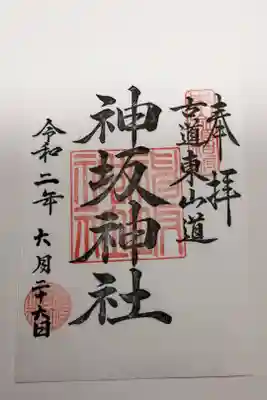 奉拝
古道東山道
神坂神社
令和二年 六月二十六日